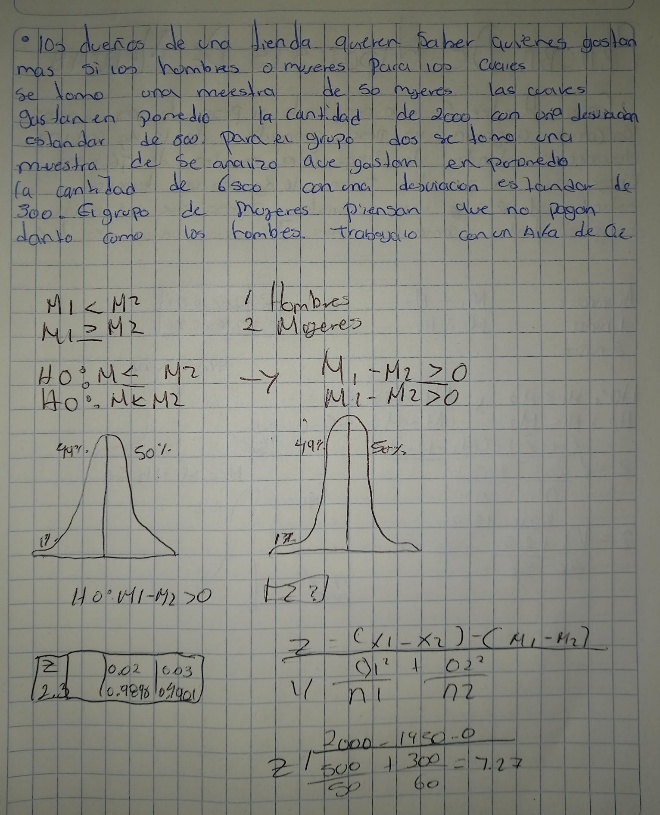 • los dueños de una tienda queren saber quienes gastan
mas si los hombres o mueres para los cuales
se tomo una meestra de 50 mujeres las cuales
gastan en pomedio la cantidad de 2000 con una desviacion
estandar de 500 para el grupo dos se tomo una
muestra de se analizo que gastan en poromedio
la cantidad de con una desviacion estandar de
300. El grupo de mugeres piensan que no pagan
danto como los hombes. trabejalo con un Alfa de
M1 < M2 1 Hombres
M1 ≥ M2 2 Mogeres
H0: M ≤ M2 → M1 - M2 ≥ 0
H0: M < M2 M1 - M2 > 0
49% 50% 49% 50%
1% 1%
H0: M1-M2 > 0 [Z ?]
Z = (x1 - x2) - (M1 - M2)
Z 0.02 0.03
√ σ1² + σ2²
2.3 0.9898 0.9901
n1 n2
2000 - 1950 - 0
Z √ 500 + 300 = 7.27
50 60